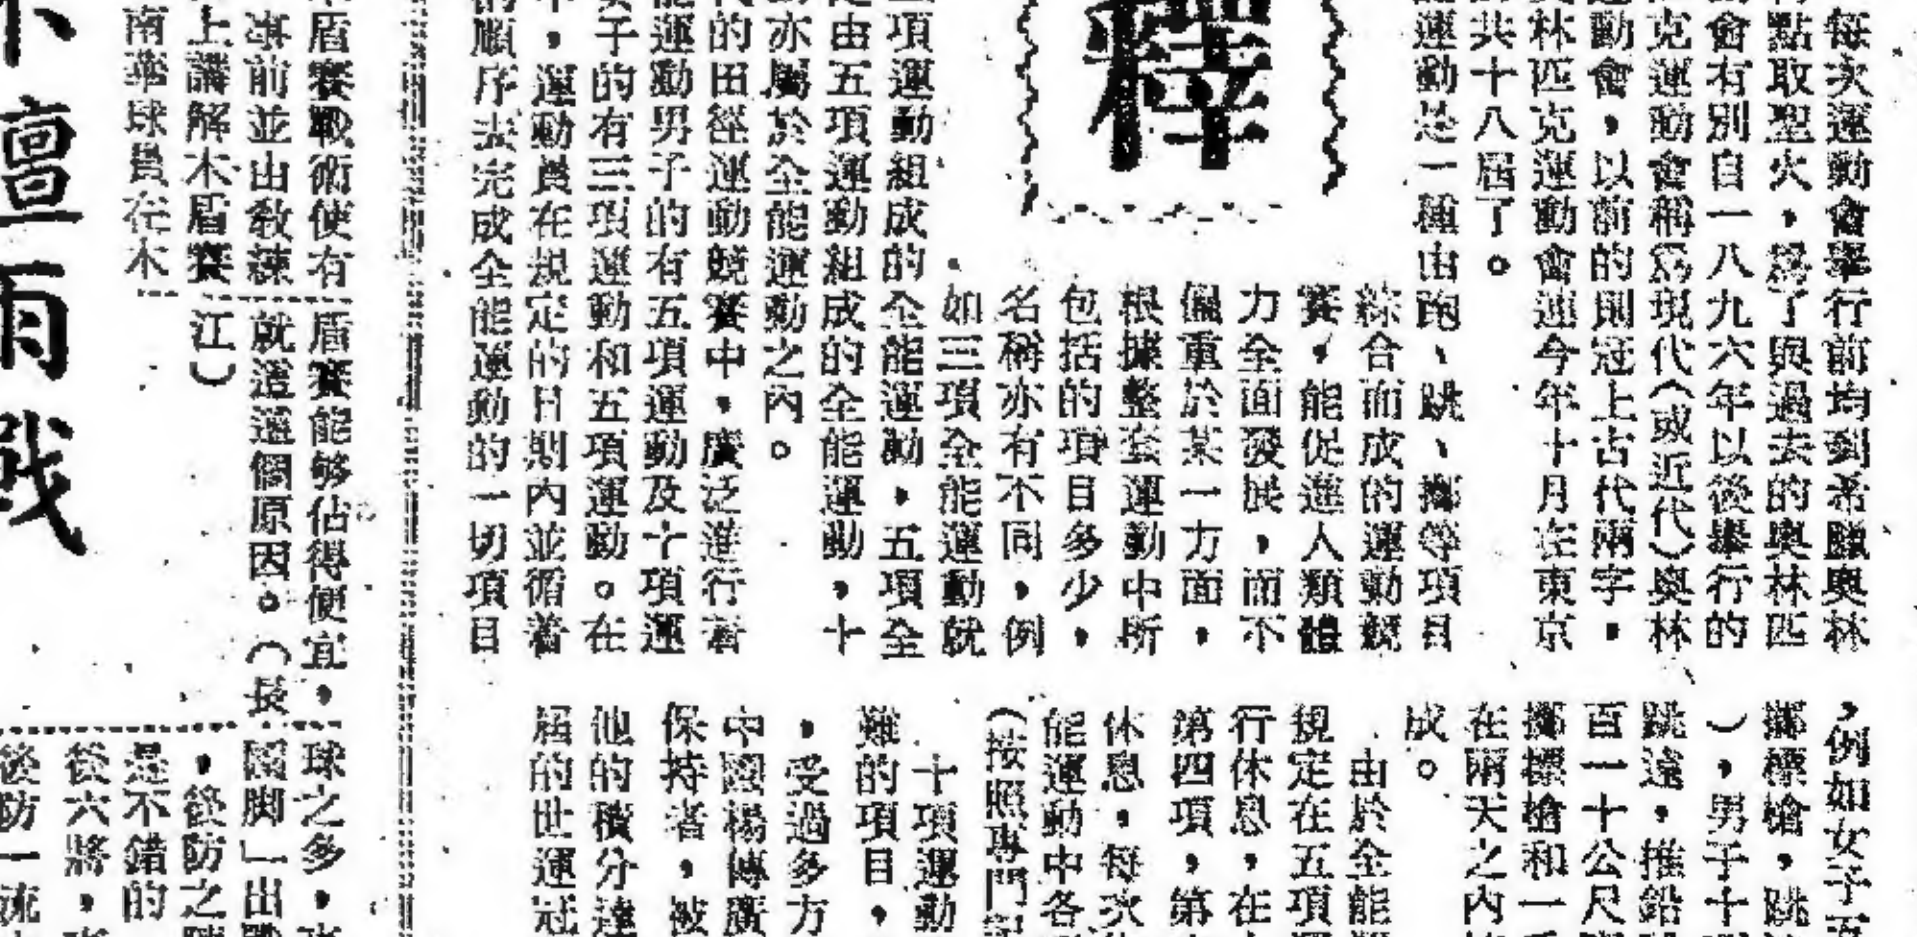 每次運動會舉行前均到希臘奧林
點取聖火，為了與過去的奧林匹
會有別自一八九六年以後舉行的
克運動會稱為現代（或近代）奧林
動會，以前的則冠上古代兩字。
林匹克運動會連今年十月在東京
共十八屆了。
運動是一種由跑、跳、擲等項目
綜合而成的運動競
賽，能促進人類體
力全面發展，而不
偏重於某一方面，
根據整套運動中所
包括的項目多少，
名稱亦有不同，例
如三項全能運動就
項運動組成的全能運動，五項全
由五項運動組成的全能運動，十
亦屬於全能運動之內。
的田徑運動競賽中，廣泛進行着
運動男子的有五項運動及十項運
子的有三項運動和五項運動。在
，運動員在規定的日期內並循着
順序去完成全能運動的一切項目
釋
，例如女子
擲標槍，跳
），男子十
跳遠，推鉛
百一十公尺
擲標槍和一
在兩天之內
成。
由於全能
規定在五項
行休息，在
第四項，第
休息，每次
能運動中各
（按照專門
十項運動
難的項目，
，受過多方
中國楊傳廣
保持者，被
他的積分達
屆的世運冠
盾賽戰術使有
事前並由教練
上講解木盾賽
南華球員在木
盾賽能够佔得便宜，
就道這個原因。（長
江）
球之多，
脚」出
，後防之
是不錯的
後六將，
後防一流
壇兩戰